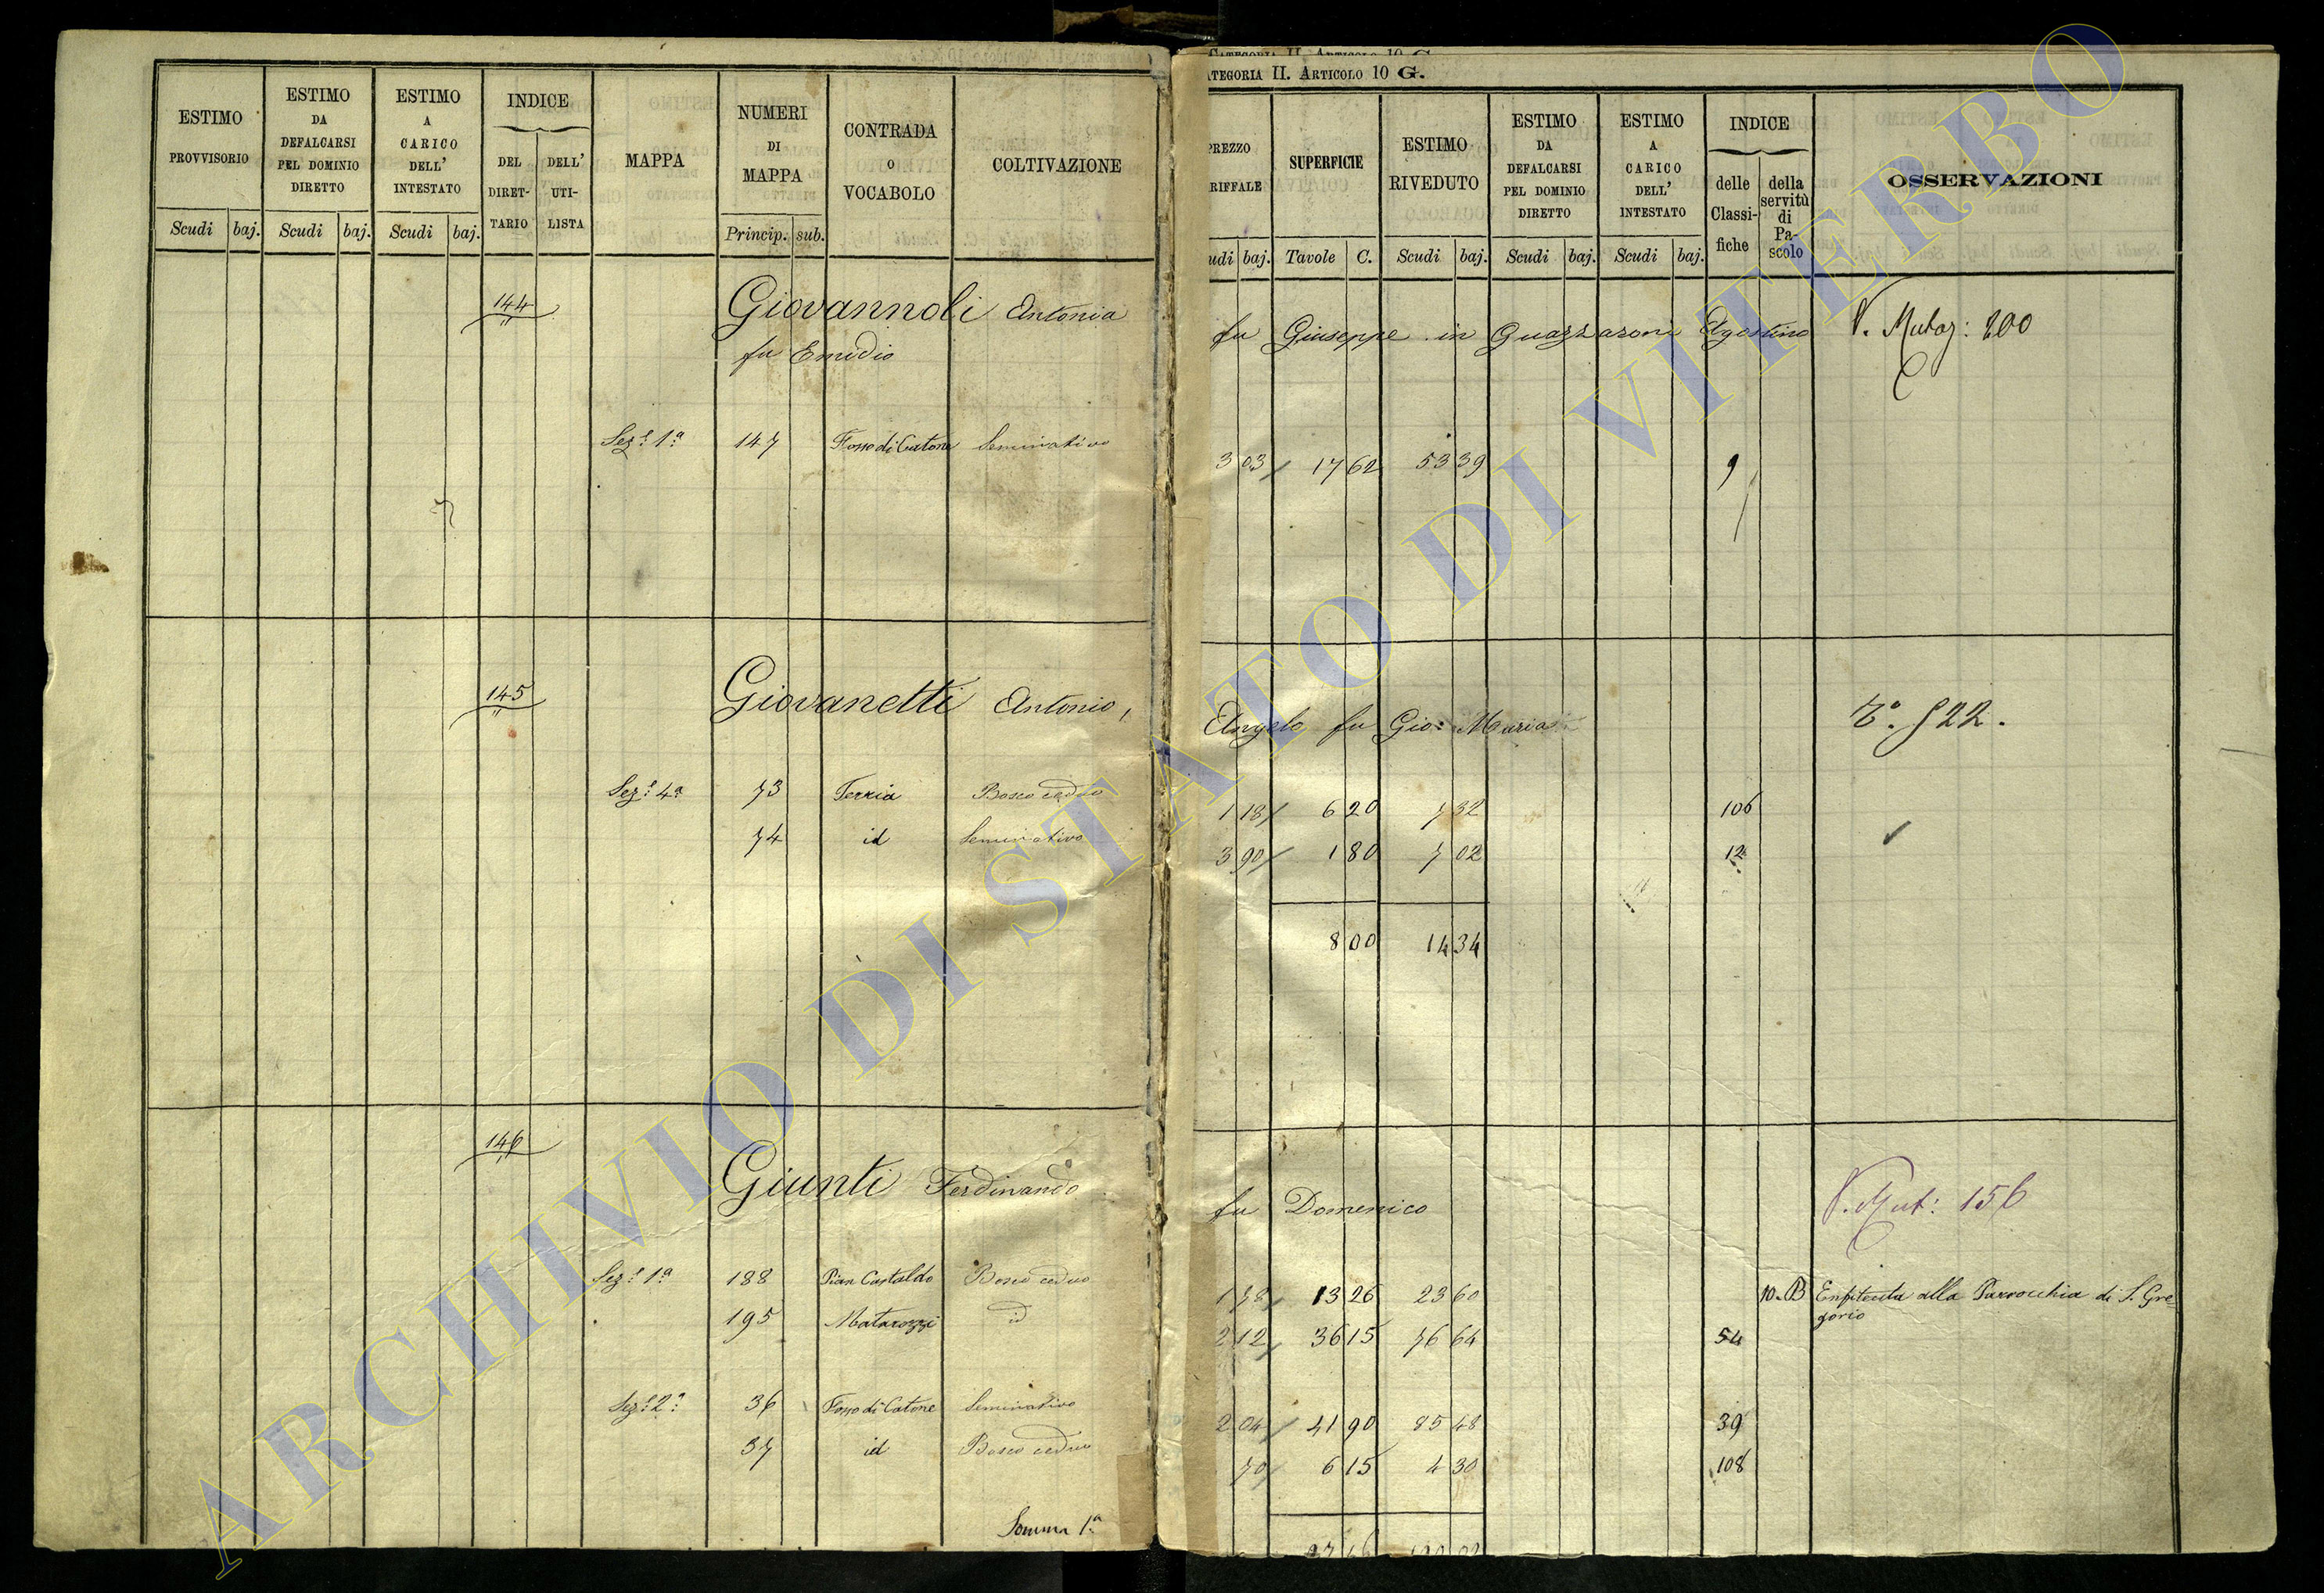 CATEGORIA II. ARTICOLO 10 G.
ATEGORIA II. ARTICOLO 10 G.
ESTIMO PROVVISORIO
Scudi baj.
ESTIMO DA DEFALCARSI PEL DOMINIO DIRETTO
Scudi baj.
ESTIMO A CARICO DELL' INTESTATO
Scudi baj.
INDICE
DEL DIRET-TARIO
DELL' UTI-LISTA
MAPPA
NUMERI DI MAPPA
Princip. sub.
CONTRADA o VOCABOLO
COLTIVAZIONE
PREZZO RIFFALE
udi baj.
SUPERFICIE
Tavole C.
ESTIMO RIVEDUTO
Scudi baj.
ESTIMO DA DEFALCARSI PEL DOMINIO DIRETTO
Scudi baj.
ESTIMO A CARICO DELL' INTESTATO
Scudi baj.
INDICE
delle Classi-fiche
della servitù di Pa-scolo
OSSERVAZIONI
144 Giovannoli Antonia fu Giuseppe in Guazzaroni Agostino V. Mutaz: 200
fu Emidio
Sez.e 1a 147 Fosso di Catone Seminativo 3 03 17 62 53 39 9
145 Giovanetti Antonio, Angelo fu Gio: Maria 522.
Sez.e 4a 73 Terria Bosco ceduo 1 18 6 20 7 32 106
74 id Seminativo 3 90 1 80 7 02 12
8 00 14 34
146 Giunti Ferdinando fu Domenico V. Mut: 156
Sez.e 1a 188 Pian Castaldo Bosco ceduo 1 78 13 26 23 60 10.B Enfiteuta alla Parrocchia di S. Gre-
gorio
195 Matarozzi id 2 12 36 15 76 64 54
Sez.e 2a 36 Fosso di Catone Seminativo 2 04 41 90 85 48 39
37 id Bosco ceduo 70 6 15 4 30 108
Somma 1a
ARCHIVIO DI STATO DI VITERBO